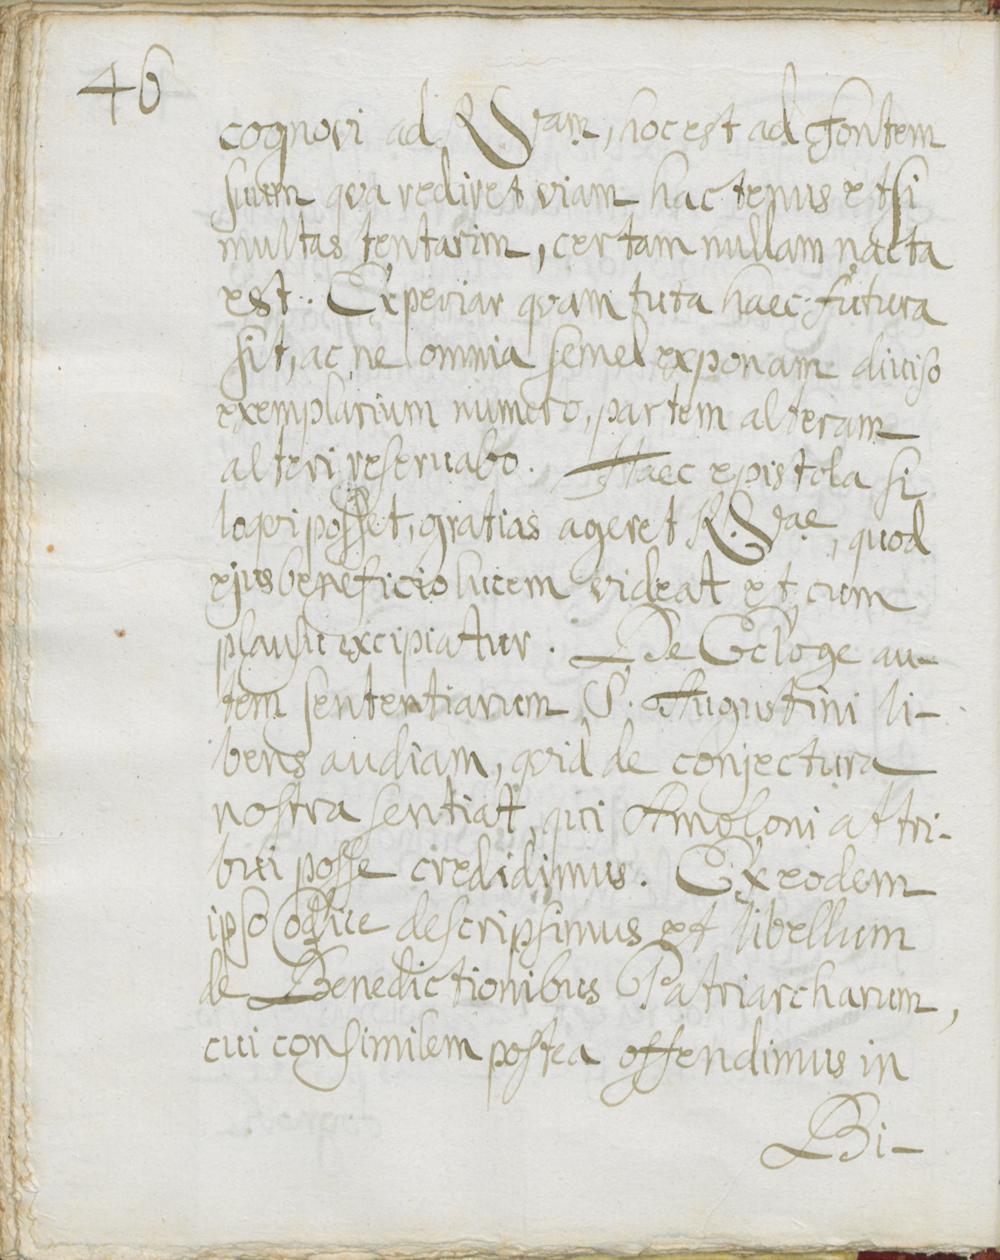 46
cognovi ad RVram, hoc est ad fontem
suum qva rediret viam hactenus etsi
multas tentarim, certam nullam nacta
est. Experiar qvam tuta haec futura
sit, ac, ne omnia semel exponam diviso
exemplarium numero, partem alteram
alteri reservabo. Haec epistola si
loqvi posset, gratias ageret RVrae, quod
ejus beneficio lucem videat et cum
plausu excipiatur. De Ecloge au-
tem sententiarum S. Augustini li-
bens audiam, qvid de conjectura
nostra sentiat, qui Amoloni attri-
bui posse credidimus. Ex eodem
ipso Codice descripsimus et libellum
de Benedictionibus Patriarcharum,
cui consimilem postea offendimus in
Bi-